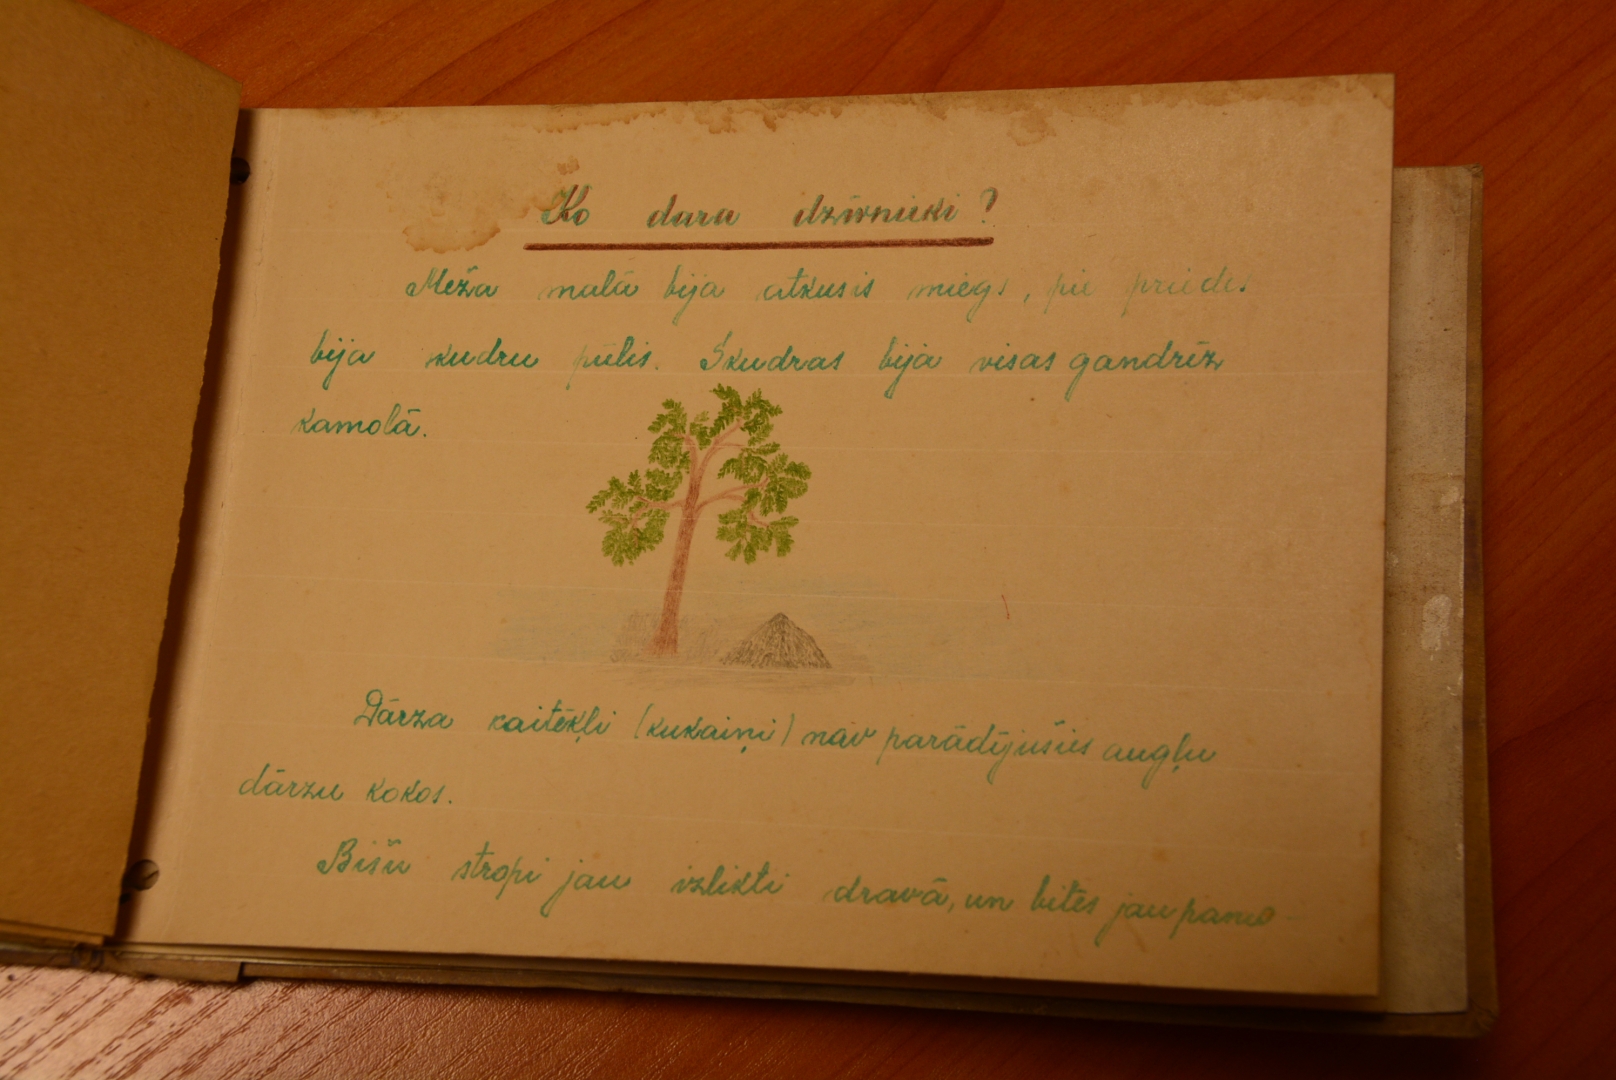 Ko dara dzīvnieki?
Meža malā bija atkusis sniegs, pie priedes
bija skudru pūlis. Skudras bija visas gandrīz
kamolā.
Dārza kaitēkļi (kukaiņi) nav parādījušies augļu
dārzu kokos.
Bišu stropi jau izlikti dravā, un bites jau pamo-